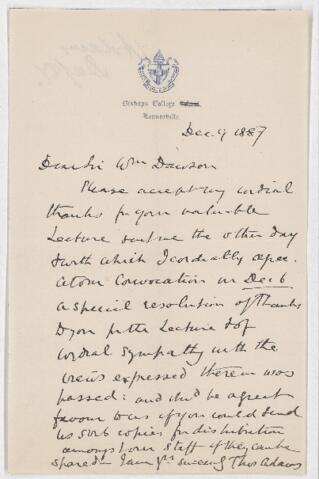 Bishops College
Lennoxville.
Dec. 9 1887
Dear Sir Wm Dawson
Please accept my cordial
thanks for your valuable
Lecture sent me the other day
& with which I cordially agree.
At our Convocation on Dec 6
a special resolution of Thanks
to you for the Lecture & of
cordial sympathy with the
views expressed therein was
passed: and it wd be a great
favour to us if you could send
us 5 or 6 copies for distribution
amongst our staff if they can be
spared. I am yrs sincerely Thos Adams